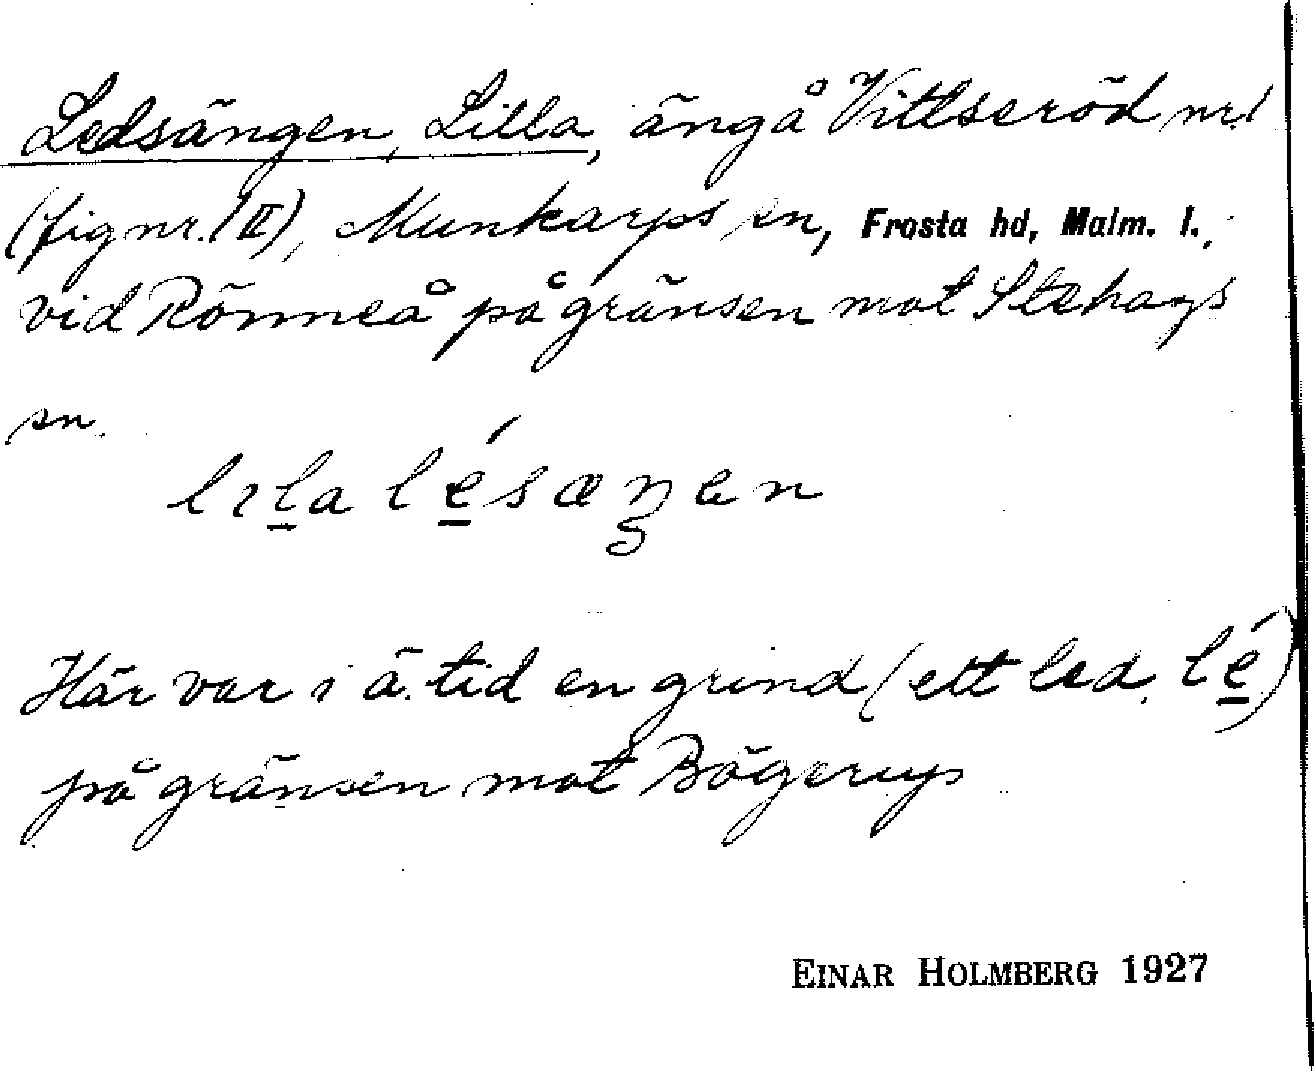 Ledsängen, Lilla, äng å Vittseröd nr 1
(fig nr. 1 II), Munkarps sn, Frosta hd, Malm. l.,
vid Rönneå på gränsen mot Stehags
sn.
lɪla lésæŋen
Här var i ä. tid en grind (ett led, lé)
på gränsen mot Bögerup
EINAR HOLMBERG 1927